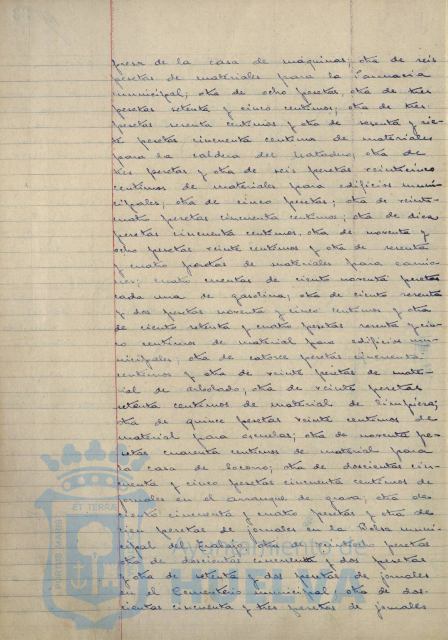 presa de la casa de máquinas; otra de seis
pesetas de materiales para la Farmacia
municipal; otra de ocho pesetas, otra de tres
pesetas setenta y cinco céntimos; otra de tres
pesetas sesenta céntimos y otra de sesenta y sie-
te pesetas cincuenta céntimos de materiales
para la caldera del Matadero; otra de
tres pesetas y otra de seis pesetas veinticinco
céntimos de materiales para edificios muni-
cipales; otra de cinco pesetas; otra de veinti-
cuatro pesetas cincuenta céntimos; otra de diez
pesetas cincuenta céntimos, otra de noventa y
ocho pesetas veinte céntimos y otra de sesenta
y cuatro pesetas de materiales para camio-
nes; cuatro cuentas de ciento noventa pesetas
cada una de gasolina; otra de ciento sesenta
y dos pesetas noventa y cinco céntimos y otra
de ciento setenta y cuatro pesetas sesenta y cin-
co céntimos de material para edificios mu-
nicipales; otra de catorce pesetas cincuenta
céntimos y otra de veinte pesetas de mate-
rial de arbolado; otra de veinte pesetas
setenta céntimos de material de limpieza;
otra de quince pesetas veinte céntimos de
material para escuelas; otra de noventa pe-
setas cuarenta céntimos de material para
la casa de socorro; otra de doscientas cin-
cuenta y cinco pesetas cincuenta céntimos de
jornales en el arranque de grava; otra de
ciento cincuenta y cuatro pesetas y otra de
cien pesetas de jornales en la Bolsa muni-
cipal del trabajo; otra de pesetas
otra de doscientas cincuenta y dos pesetas
y otra de setenta y dos pesetas de jornales
en el Cementerio municipal; otra de dos-
cientas cincuenta y tres pesetas de jornales
PORTUS MARIS
ET TERRAE
Ayuntamiento de
HUELVA